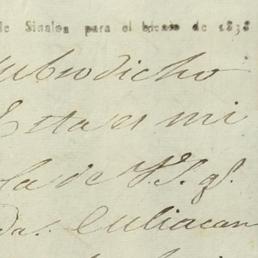 de Sinaloa para el bienio de 1838
Subsodicho
Esta es mi
la de V.S. q.
das. Culiacan